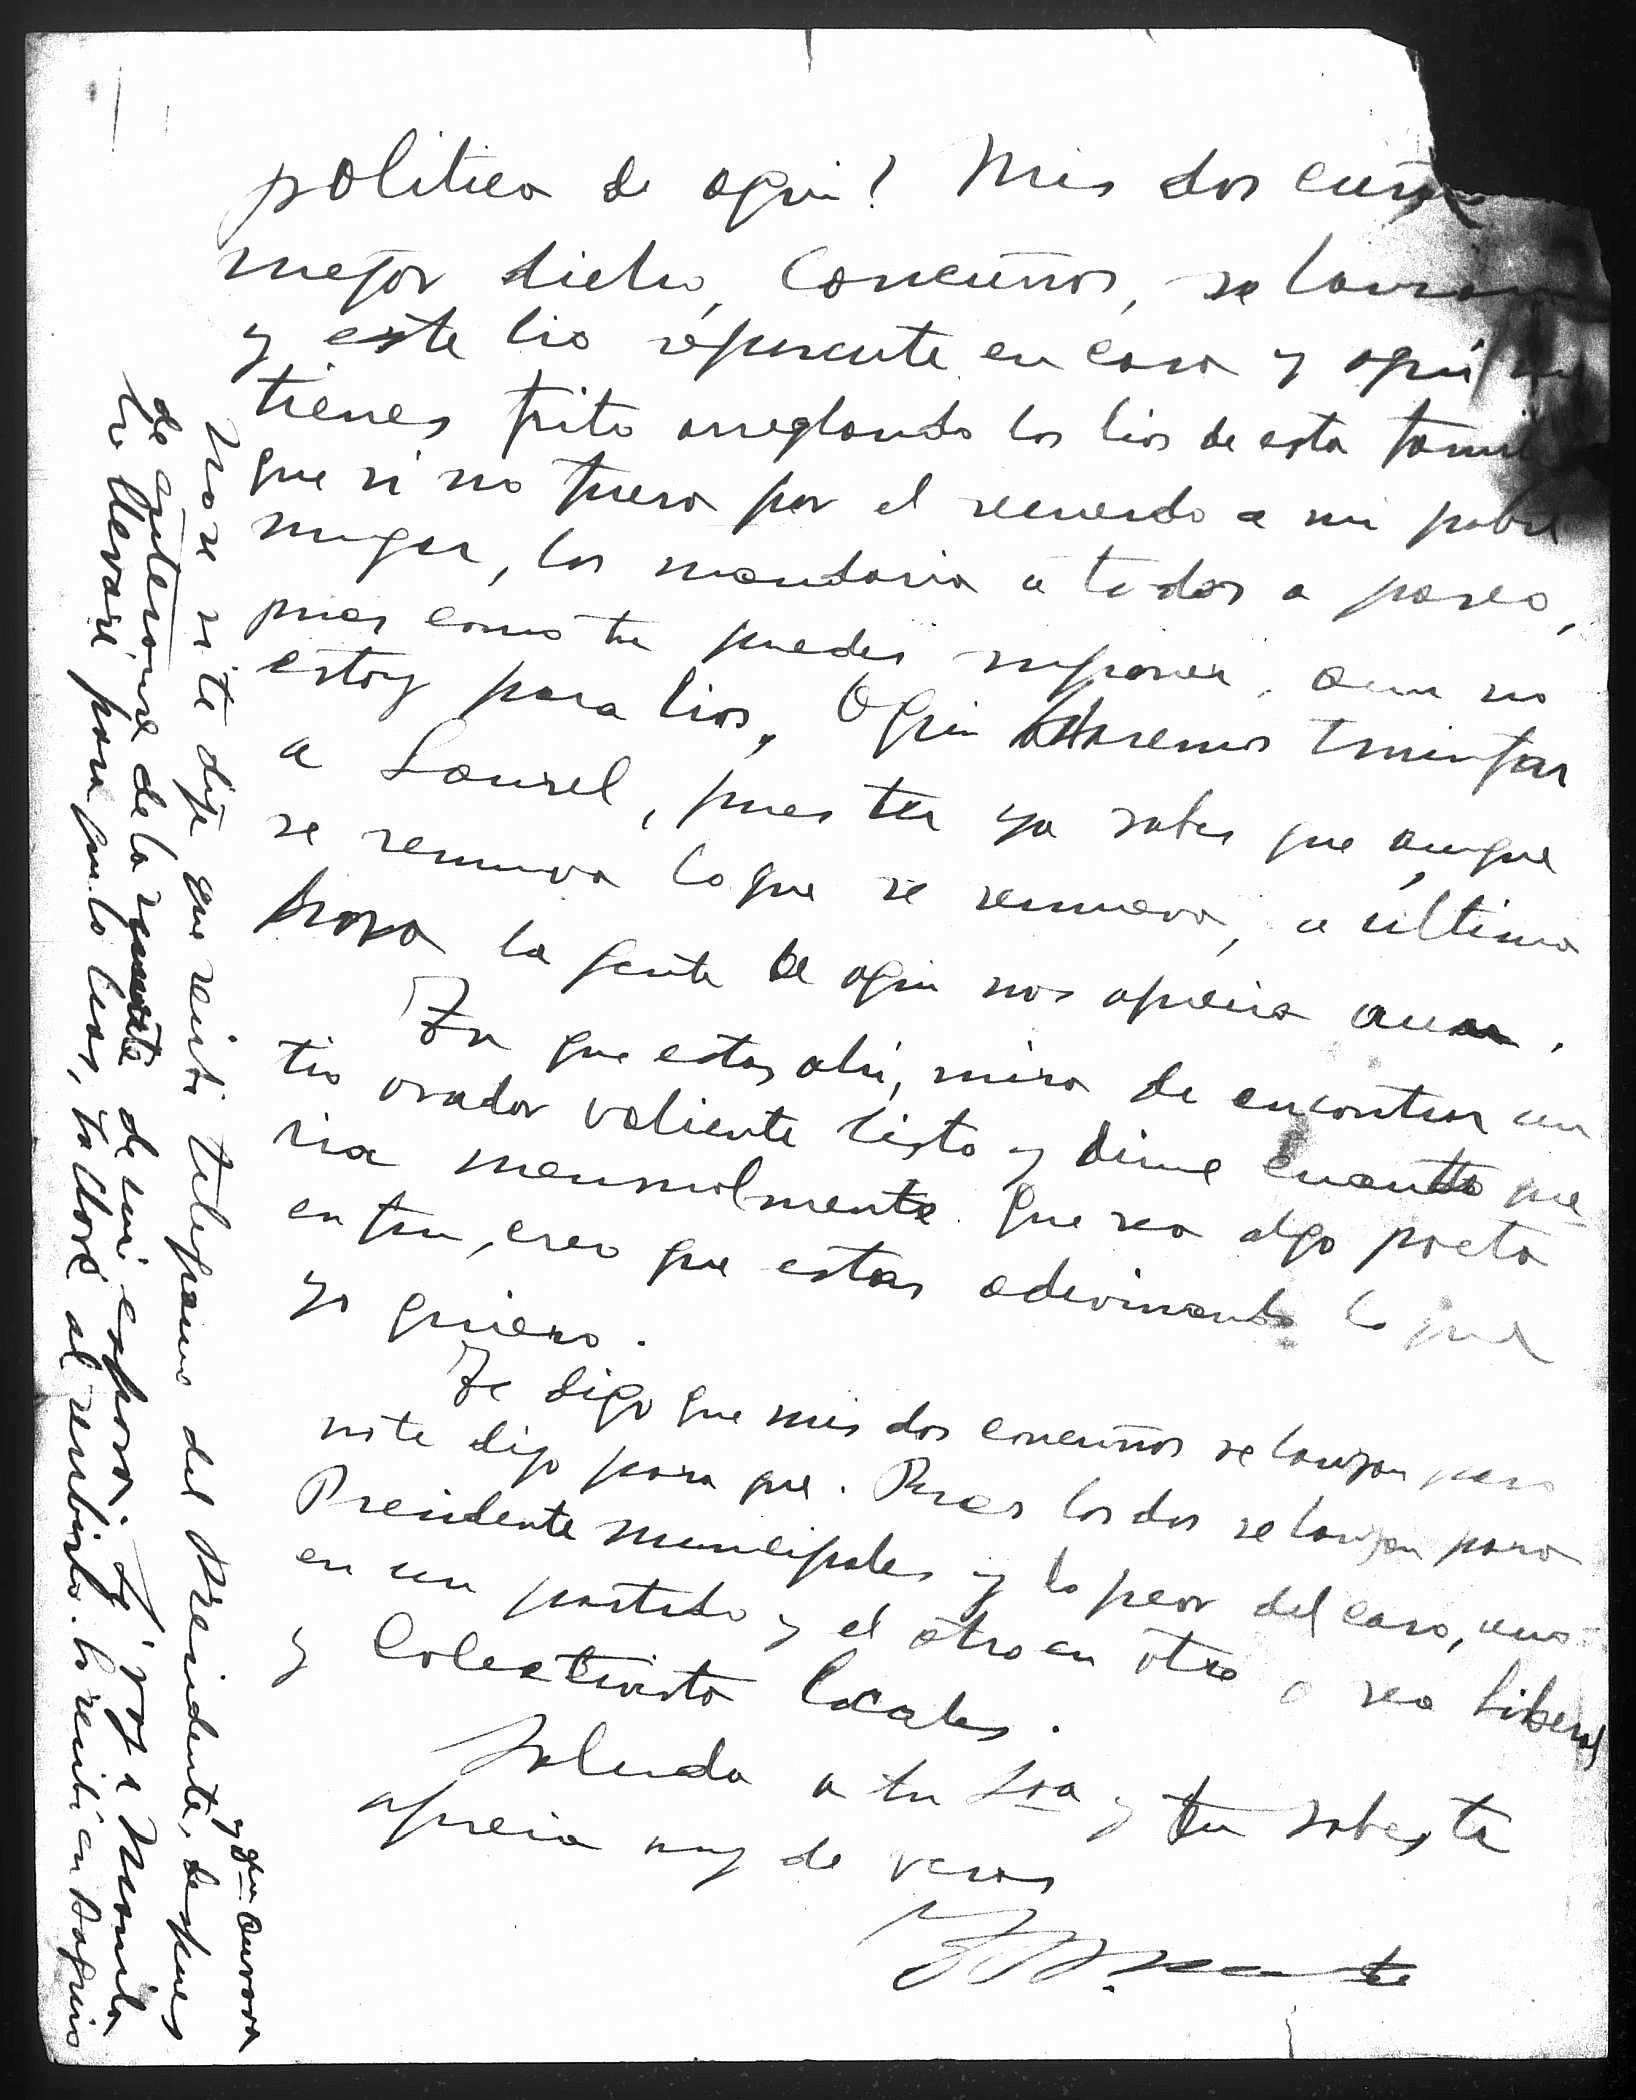 politica de aqui? Mis dos cuña
mejor dicho, concuños, se lanzan
y este lio repercute en casa y aqui me
tienes frito arreglando los lios de esta famil
que si no fuera por el recuerdo a mi pobre
muger, los mandaria a todos a paseo,
pues como tu puedes suponer, aun no
estoy para lios. Aqui haremos triunfar
a Laurel, pues tu ya sabes que aunque
se remueva lo que se remueva, a ultima
hora la gente de aqui nos aprecia aun.
Tu que estas ahi, mira de encontrar un
tio orador valiente listo y dime cuanto que
ria mensualmente. Que sea algo poeta
en fin, creo que estas adivinando lo que
yo quiero.
Te digo que mis dos concuños se lanzan pero
no te digo para que. Pues los dos se lanzan para
Presidente municipales y lo peor del caso, uno
en un partido y el otro en otro o sea Liberal
y Colectivista locales.
Saluda a tu Sra y tu sabes te
aprecia muy de veras
No se si te dije que recibi telegrama del Presidente, despues
de enterarme de la muerte de mi esposa. Si voy a Manila
lo llevaré para que lo leas, te doré al recibirlo. Lo recibi en Baguio
y Aurora